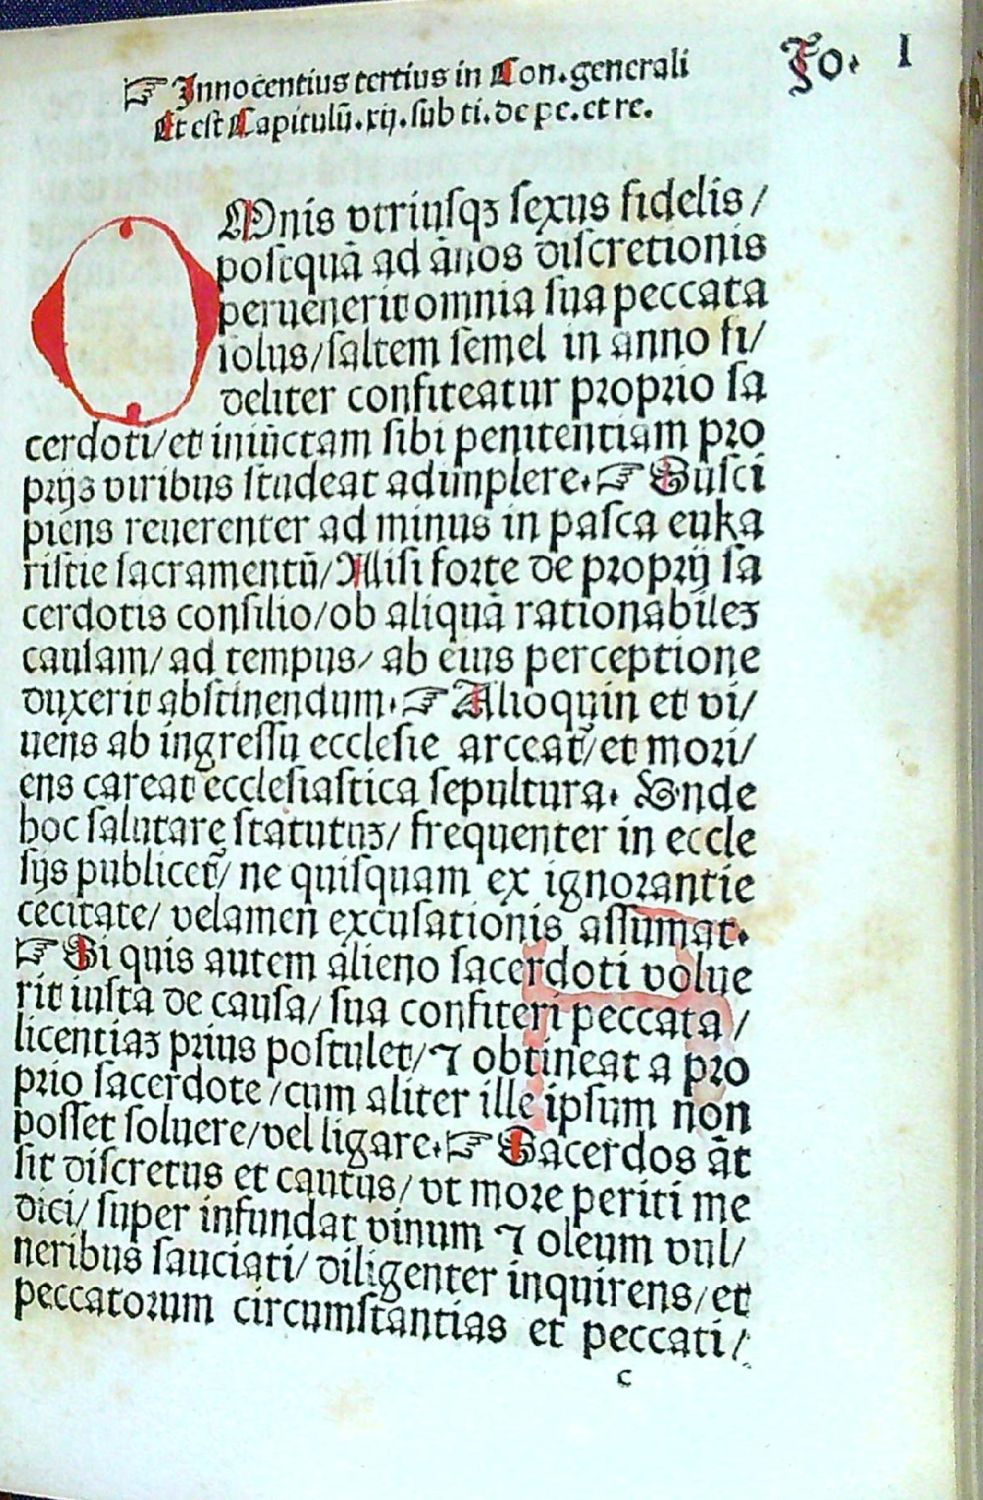 ☞ Innocentius tertius in Con. generali
Et est Capitulū. xij. sub ti. de pe. et re.
Fo. I
OMnis vtriusqꝫ sexus fidelis/
postquā ad ānos discretionis
peruenerit omnia sua peccata
solus/saltem semel in anno fi/
deliter confiteatur proprio sa
cerdoti/et iniūctam sibi penitentiam pro
prijs viribus studeat adimplere. ☞ Susci
piens reuerenter ad minus in pasca euka
ristie sacramentū/Nisi forte de proprij sa
cerdotis consilio/ob aliquā rationabileꝫ
causam/ad tempus/ab eius perceptione
duxerit abstinendum. ☞ Alioquin et vi/
uens ab ingressu ecclesie arceat᷑/et mori/
ens careat ecclesiastica sepultura. Unde
hoc salutare statutuꝫ/frequenter in eccle
sijs publicet᷑/ne quisquam ex ignorantie
cecitate/velamen excusationis assumat.
☞ Si quis autem alieno sacerdoti volue
rit iusta de causa/sua confiteri peccata/
licentiaꝫ prius postulet/⁊ obtineat a pro
prio sacerdote/cum aliter ille ipsum non
posset soluere/vel ligare. ☞ Sacerdos āt
sit discretus et cautus/vt more periti me
dici/super infundat vinum ⁊ oleum vul/
neribus sauciati/diligenter inquirens/et
peccatorum circumstantias et peccati/
c